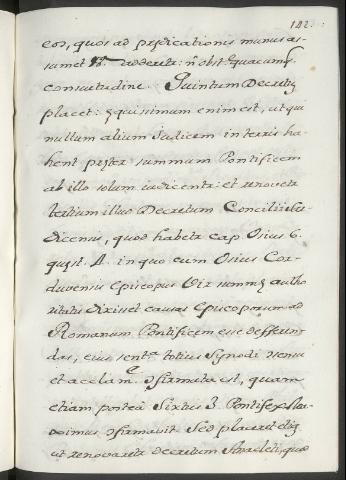 142.
eos, quos ad prędicationis munus as-
sumet S. adderetr: ñ obste quacumq
consuetudine. Quintum Decretũ
placet: ęquissimum enim est, ut qui
nullum alium Judicem in terris ha-
bent pręter summum Pontificem
ab illo solum iudicentr: et renovetr
tertium illud Decretum Concilii Sar-
dicensis, quod habetr cap. Osius 6.
quęst. 4. in quo cum Osius Cor-
duvensis Episcopus Vir summę autho
ritatis dixisset causas Episcoporum ad
Romanum Pontificem esse defferen
das, eius sentª totius Synodi consensu
et acclam.e confirmata est, quam
etiam postea Sixtus 3. Pontifex Ma-
ximus confirmavit. Sed placeret etiã
ut renovaretr decretum Anacleti, quo